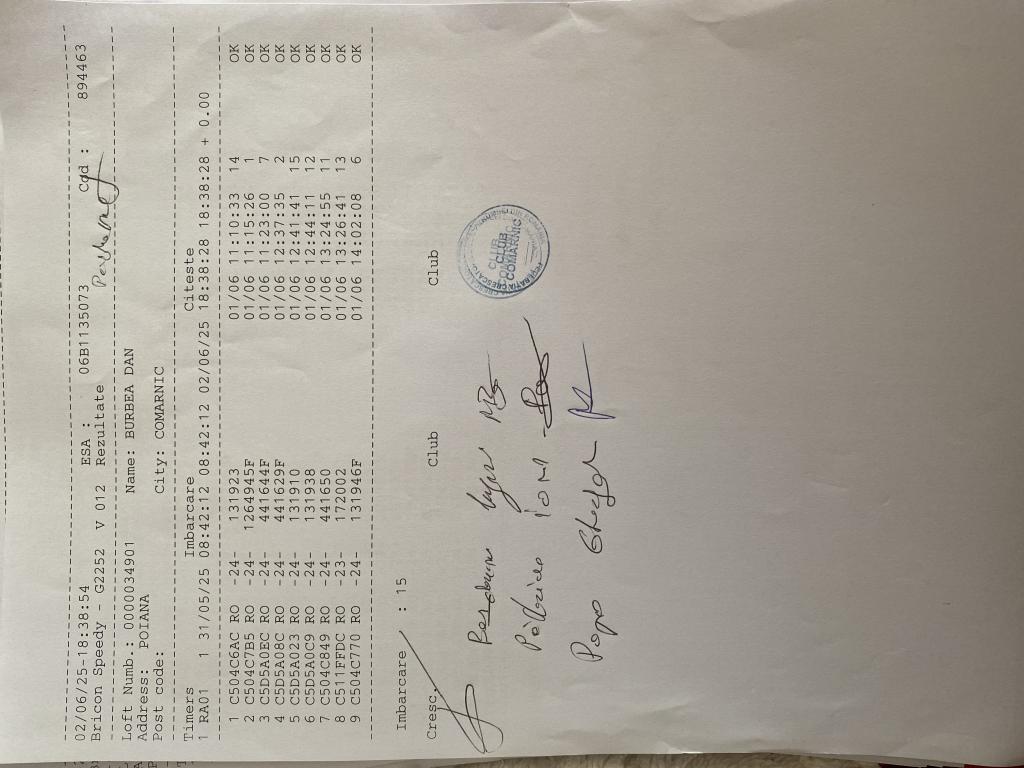 02/06/25-18:38:54 ESA : 06B1135073 Cod : 894463
Bricon Speedy - G2252 V 012 Rezultate
Loft Numb.: 0000034901 Name: BURBEA DAN
Address: POIANA
Post code: City: COMARNIC
Timers Imbarcare Citeste
1 RA01 1 31/05/25 08:42:12 08:42:12 02/06/25 18:38:28 18:38:28 + 0.00
1 C504C6AC RO -24- 131923 01/06 11:10:33 14 OK
2 C504C7B5 RO -24- 1264945F 01/06 11:15:26 1 OK
3 C5D5A0EC RO -24- 441644F 01/06 11:23:00 7 OK
4 C5D5A08C RO -24- 441629F 01/06 12:37:35 2 OK
5 C5D5A023 RO -24- 131910 01/06 12:41:41 15 OK
6 C5D5A0C9 RO -24- 131938 01/06 12:44:11 12 OK
7 C504C849 RO -24- 441650 01/06 13:24:55 11 OK
8 C511FFDC RO -23- 172002 01/06 13:26:41 13 OK
9 C504C770 RO -24- 131946F 01/06 14:02:08 6 OK
Imbarcare : 15
Cresc. Club Club
CLUB
COMARNIC
Popa